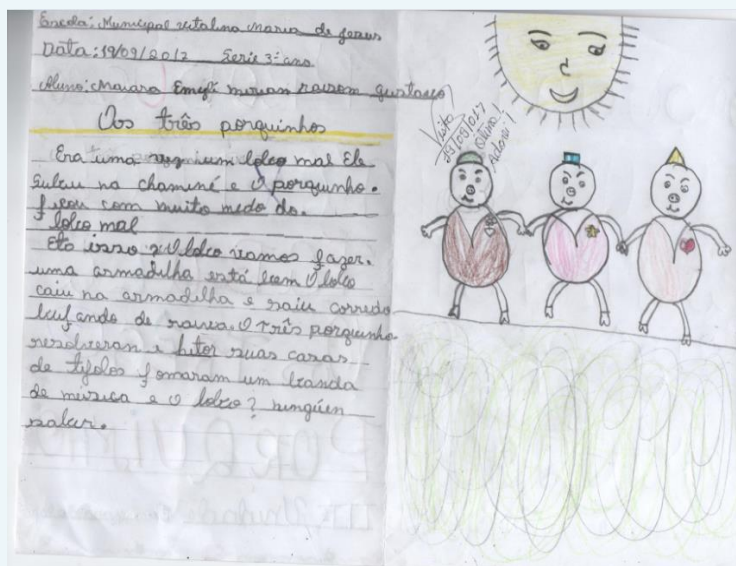 Escola: Municipal Vitalina Maria de Jesus
Data: 19/09/2017 Serie 3º ano
Aluno: Maiara Emyli miriam raissom gustavo
Os três porquinhos
Era uma um lobo mal Ele
subiu na chaminé e O porquinho.
ficou com muito medo do.
lobo mal
Eto isso o lobo vamos fazer.
uma armadilha está bem O lobo
caiu na armadilha e saiu corredo
bufando de raiva. O três porquinho
resolveran suas casas
de tijolos fomaram um banda
de musica e O lobo? ninguén
saber.
Visto
19/09/017
Ótimo!
Adorei!